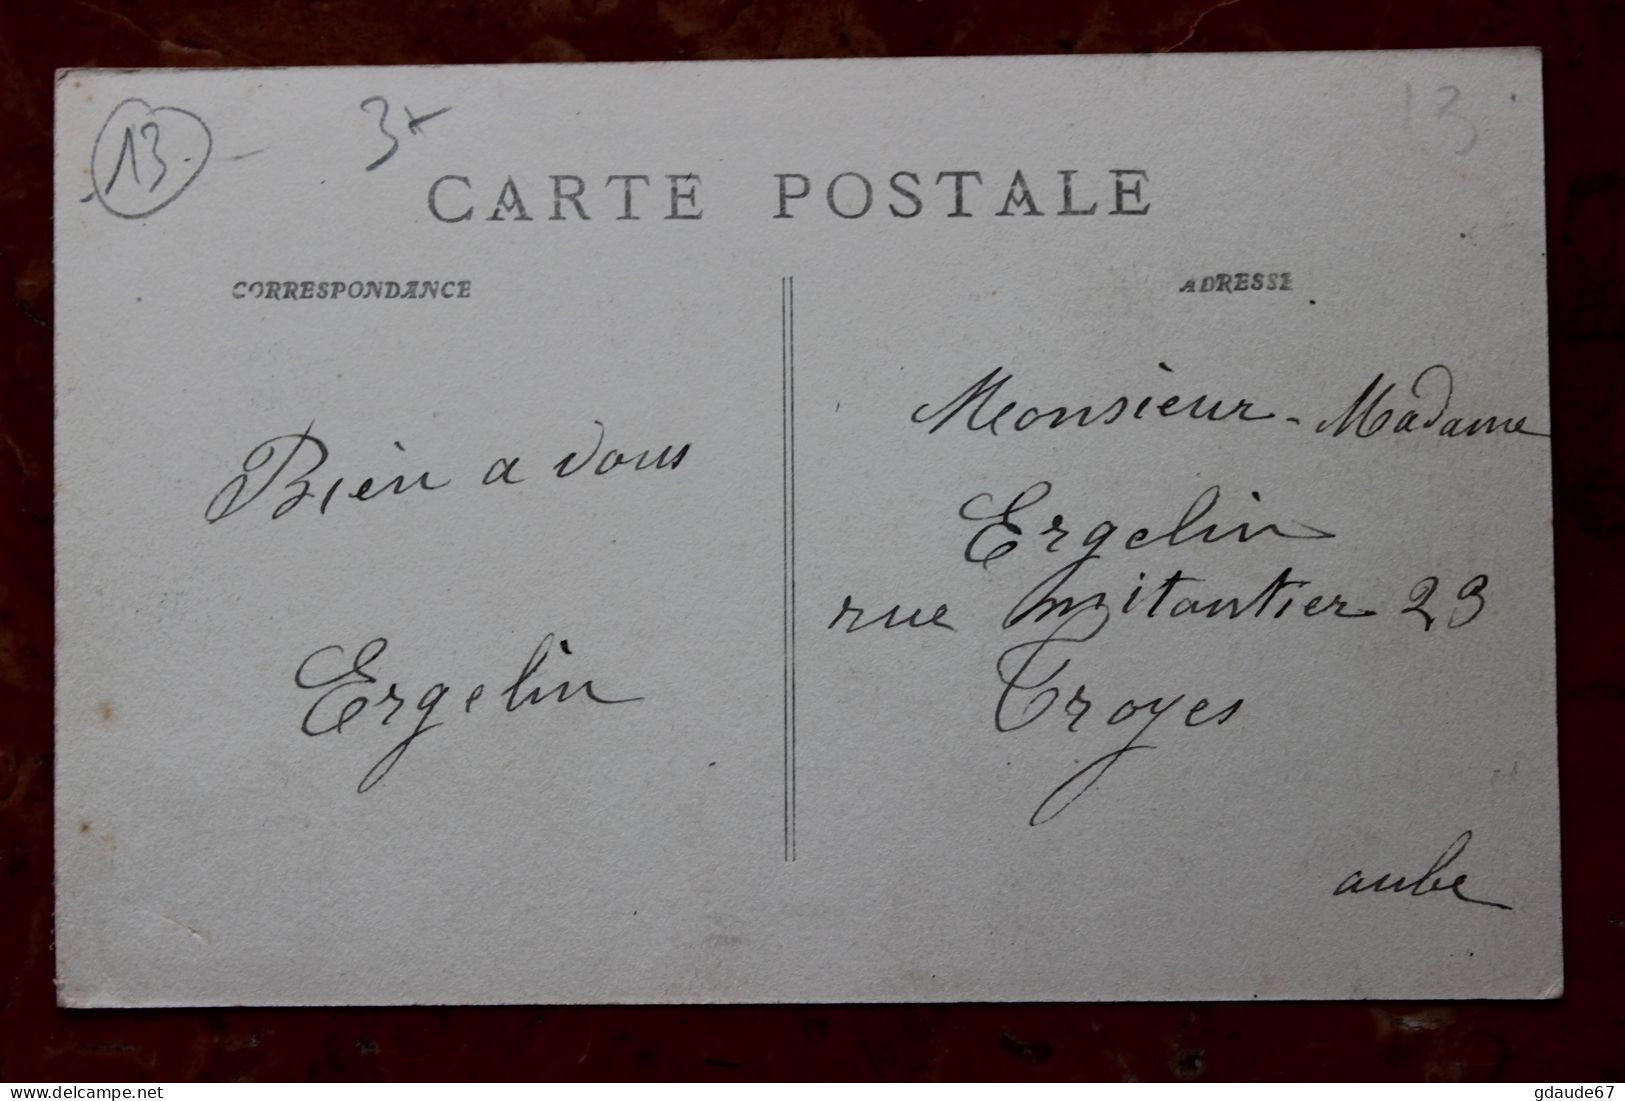 13
3
13
CARTE POSTALE
CORRESPONDANCE
ADRESSE
Bien a vous
Ergelin
Monsieur - Madame
Ergelin
rue mitantier 23
Troyes
aube
www.delcampe.net
gdaude67